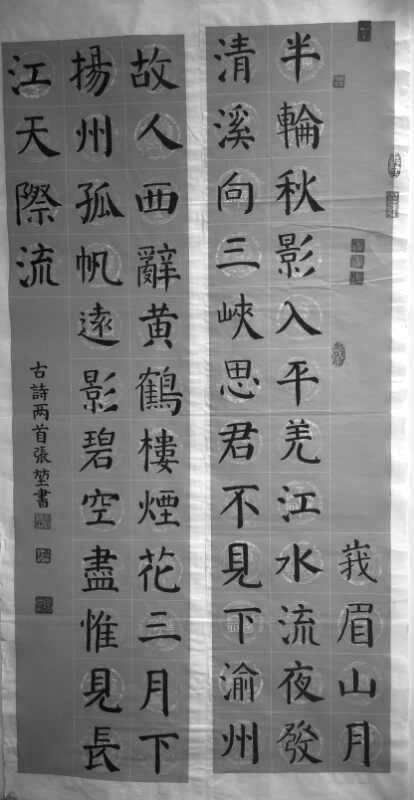 莪眉山月
半輪秋影入平羌江水流夜發
清溪向三峽思君不見下渝州
故人西辭黄鶴樓煙花三月下
揚州孤帆遠影碧空盡惟見長
江天際流
古詩两首張堃書